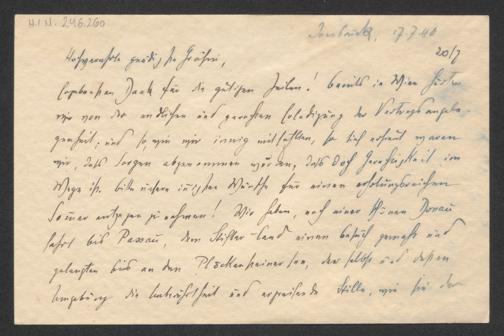 H.I.N. 246.260
Innsbruck, 17.7.40
20/7
Hochverehrte gnädigste Gräfin,
Ergebensten Dank für die gütigen Zeilen! Bereits in Wien hörten
wir von der endlichen und gerechten Erledigung der Vertragsangele-
genheit; und so, wie wir innig mitfühlten, so tief erfreut waren
wir, dass Sorgen abgenommen wurden, dass doch Gerechtigkeit im
Wege ist. Bitte unsere innigsten Wünsche für einen erholungsreichen
Sommer entgegen zu nehmen! Wir haben, nach einer schönen Donau
fahrt bis Passau, dem Stifter-Land einen Besuch gemacht und
gelangten bis an den Plöckensteinersee, der selbst und dessen
Umgebung die Unberührtheit und ergreifende Stille, wie sie der